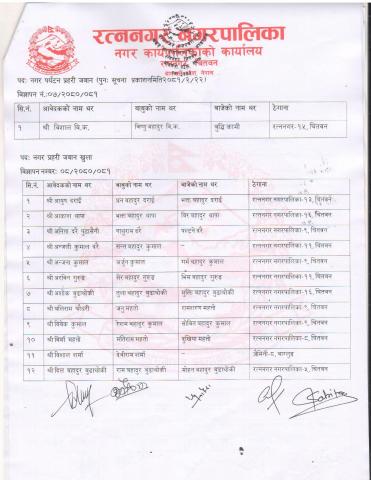 रत्ननगर नगरपालिका
नगर कार्यपालिकाको कार्यालय
रत्ननगर, चितवन
पदः नगर पर्यटन प्रहरी जवान (पुनः सूचना प्रकाशनमिति२०८१/२/२२)
विज्ञापन नं.०७/२०८०/०८१
सि.नं. आवेदकको नाम थर बाबुको नाम थर बाजेको नाम थर ठेगाना
१ श्री विशाल वि.क. विष्णु बहादुर वि.क. बुद्धि कामी रत्ननगर-१५, चितवन
पदः नगर प्रहरी जवान खुला
विज्ञापन नम्बरः ०८/२०८०/०८१
सि.नं. आवेदकको नाम थर बाबुको नाम थर बाजेको नाम थर ठेगाना
१ श्री आयुष दराई धन बहादुर दराई भक्त बहादुर दराई रत्ननगर नगरपालिका-१३, चितवन
२ श्री आकाश थापा भक्त बहादुर थापा विर बहादुर थापा रत्ननगर नगरपालिका-१६, चितवन
३ श्री असित दरै नाथुराम दरै पल्टने दरै रत्ननगर नगरपालिका-९, चितवन
४ श्री अन्जली कुमाल दरै सन्त बहादुर कुमाल – रत्ननगर नगरपालिका-११, चितवन
५ श्री अन्जना कुमाल अर्जुन कुमाल गर्भ बहादुर कुमाल रत्ननगर नगरपालिका-९, चितवन
६ श्री अरविन गुरुङ सेर बहादुर गुरुङ भिम बहादुर गुरुङ रत्ननगर नगरपालिका-९, चितवन
७ श्री अशोक बुढाथोकी तुला बहादुर बुढाथोकी मुक्ति बहादुर बुढाथोकी रत्ननगर नगरपालिका-१६, चितवन
८ श्री बलिराम चौधरी जनु महतो रामशरण महतो रत्ननगर नगरपालिका-९, चितवन
९ श्री विवेक कुमाल रेशम बहादुर कुमाल सोवित बहादुर कुमाल रत्ननगर नगरपालिका-९, चितवन
१० श्री विर्मा महतो मतिराम महतो बुखिया महतो रत्ननगर नगरपालिका-८, चितवन
११ श्री विशाल शर्मा देवीराम शर्मा – जैमिनी-८, बागलुङ
१२ श्री दिल बहादुर बुढाथोकी राम बहादुर बुढाथोकी मोहन बहादुर बुढाथोकी रत्ननगर नगरपालिका-५, चितवन